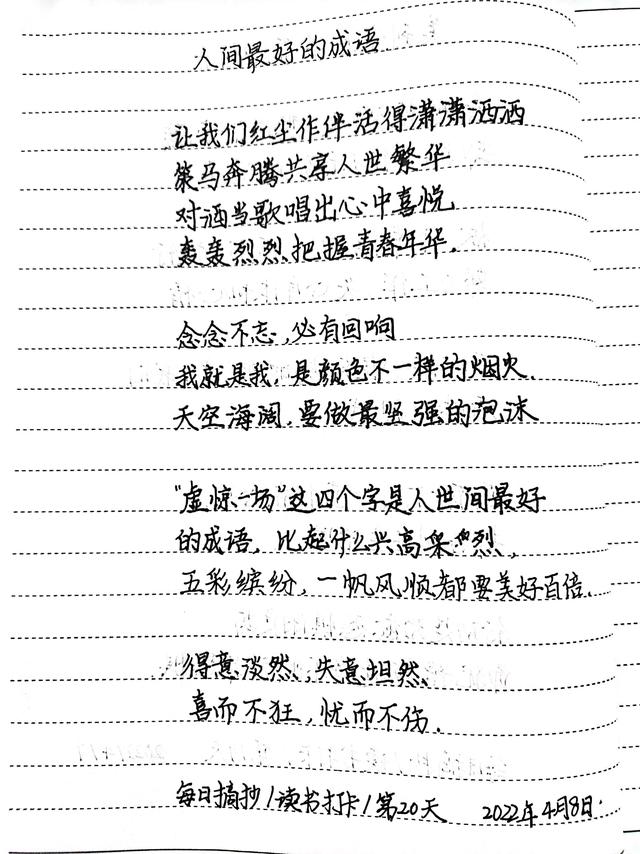 人间最好的成语
让我们红尘作伴活得潇潇洒洒
策马奔腾共享人世繁华
对酒当歌唱出心中喜悦
轰轰烈烈把握青春年华.
念念不忘,必有回响
我就是我,是颜色不一样的烟火.
天空海阔,要做最坚强的泡沫
"虚惊一场"这四个字是人世间最好
的成语,比起什么兴高采烈,
五彩缤纷,一帆风顺都要美好百倍.
得意淡然,失意坦然
喜而不狂,忧而不伤.
每日摘抄/读书打卡/第20天 2022年4月8日.